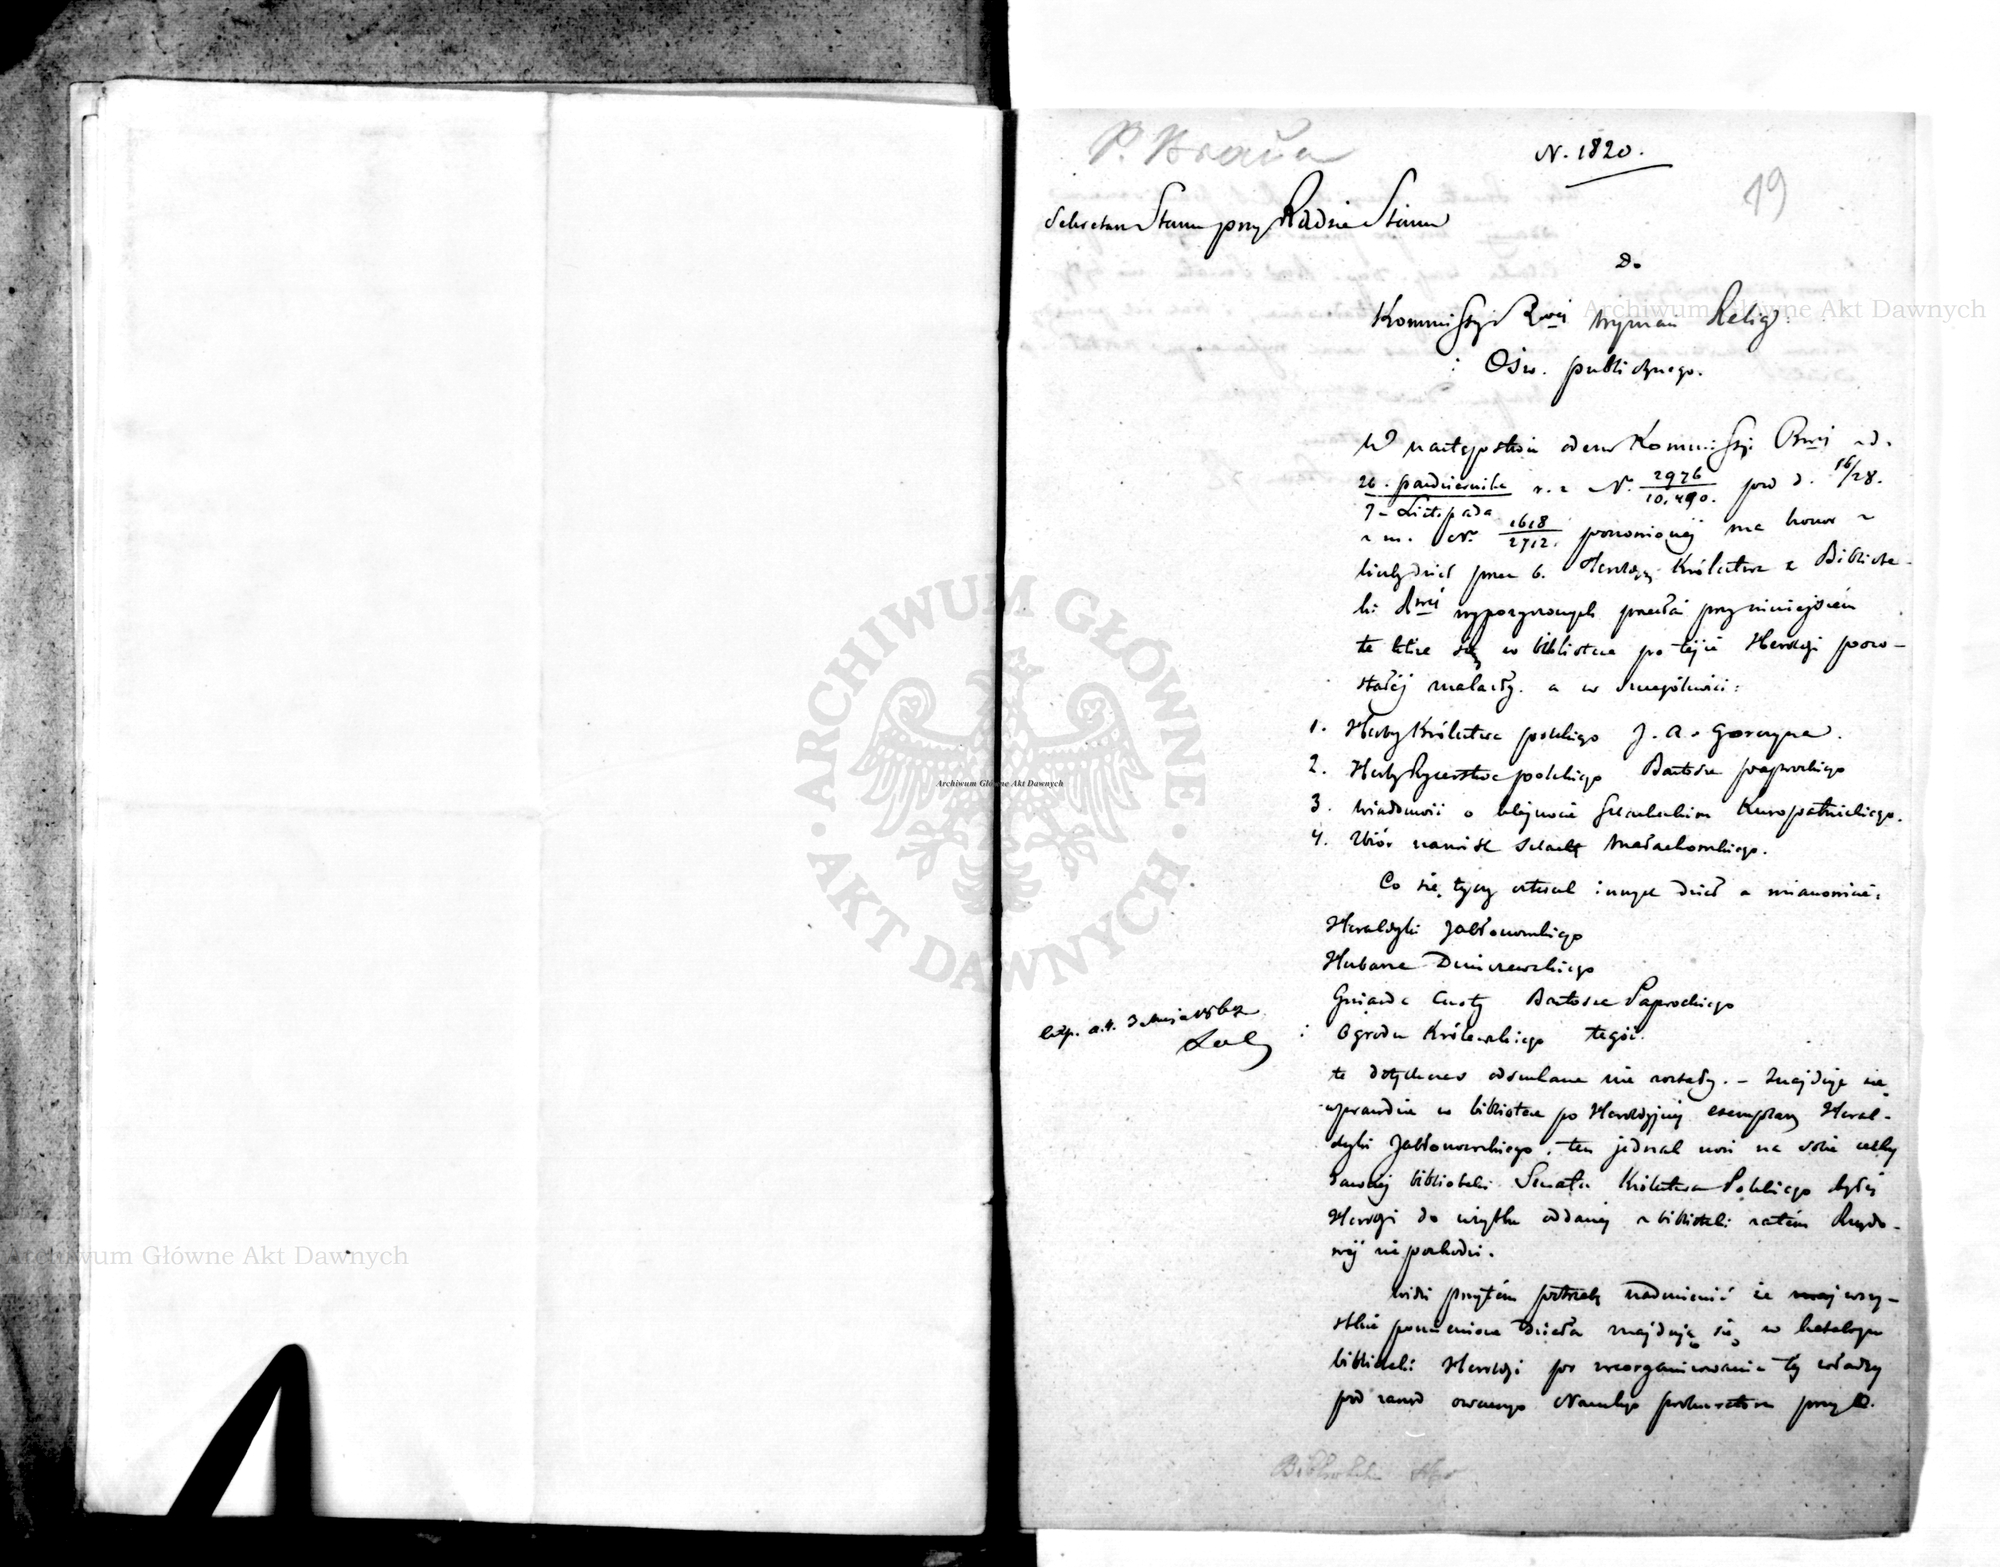 P. Braun
N. 1820.
19
Sekretarz Stanu przy Radzie Stanu
do
Kommissyi Rwéj Wyznań Relig:
i Ośw. publicznego.
W następstwie odezw Kommissyi Rwéj z d.
26. października r. z. Nr. 2976 / 10,490. pod d. 16/28.
7 Listopada
z m. Nr. 1618 / 2712. ponowionéj ma honor z
liczby dzieł przez b. Heroldyą Królestwa z Bibliote-
ki Rwéj wypożyczonych przesłać przy niniejszém
te które się w bibliotece po tejże Heroldyi pozo-
stałéj znalazły. a w szczególności:
1. Herby Królestwa polskiego J. A. Gorczyna.
2. Herby Rycerstwa polskiego Bartosza paprockiego
3. Wiadomość o klejnocie szlacheckim Kuropatnickiego.
4. Zbiór nazwisk szlachty Małachowskiego.
Co się tyczy innych dzieł a mianowicie:
Heraldyki Jabłonowskiego
Herbarza Duńczewskiego
Gniazda Cnoty Bartosza Paprockiego
i Ogrodu Królewskiego tegoż.
te dotychczas odszukane nie zostały. – Znajduje się
wprawdzie w bibliotece po Heroldyjnéj exemplarz Heral-
dyki Jabłonowskiego, ten jednak nosi na sobie cechy
dawnéj biblioteki Senatu Królestwa Polskiego byłéj
Heroldyi do użytku oddanéj z biblioteki zatém Rządo-
wéj nie pochodzi.
Widzi przytém potrzebę nadmienić że wszy-
stkie pomienione dzieła znajdują się w katalogu
biblioteki Heroldyi po zreorganizowaniu téj władzy
pod zarząd Naczelnego prokuratora przy
exp. d. 3 Maja
Biblioteki
Archiwum Główne Akt Dawnych
Archiwum Główne Akt Dawnych
Archiwum Główne Akt Dawnych
ARCHIWUM GŁÓWNE · AKT DAWNYCH ·